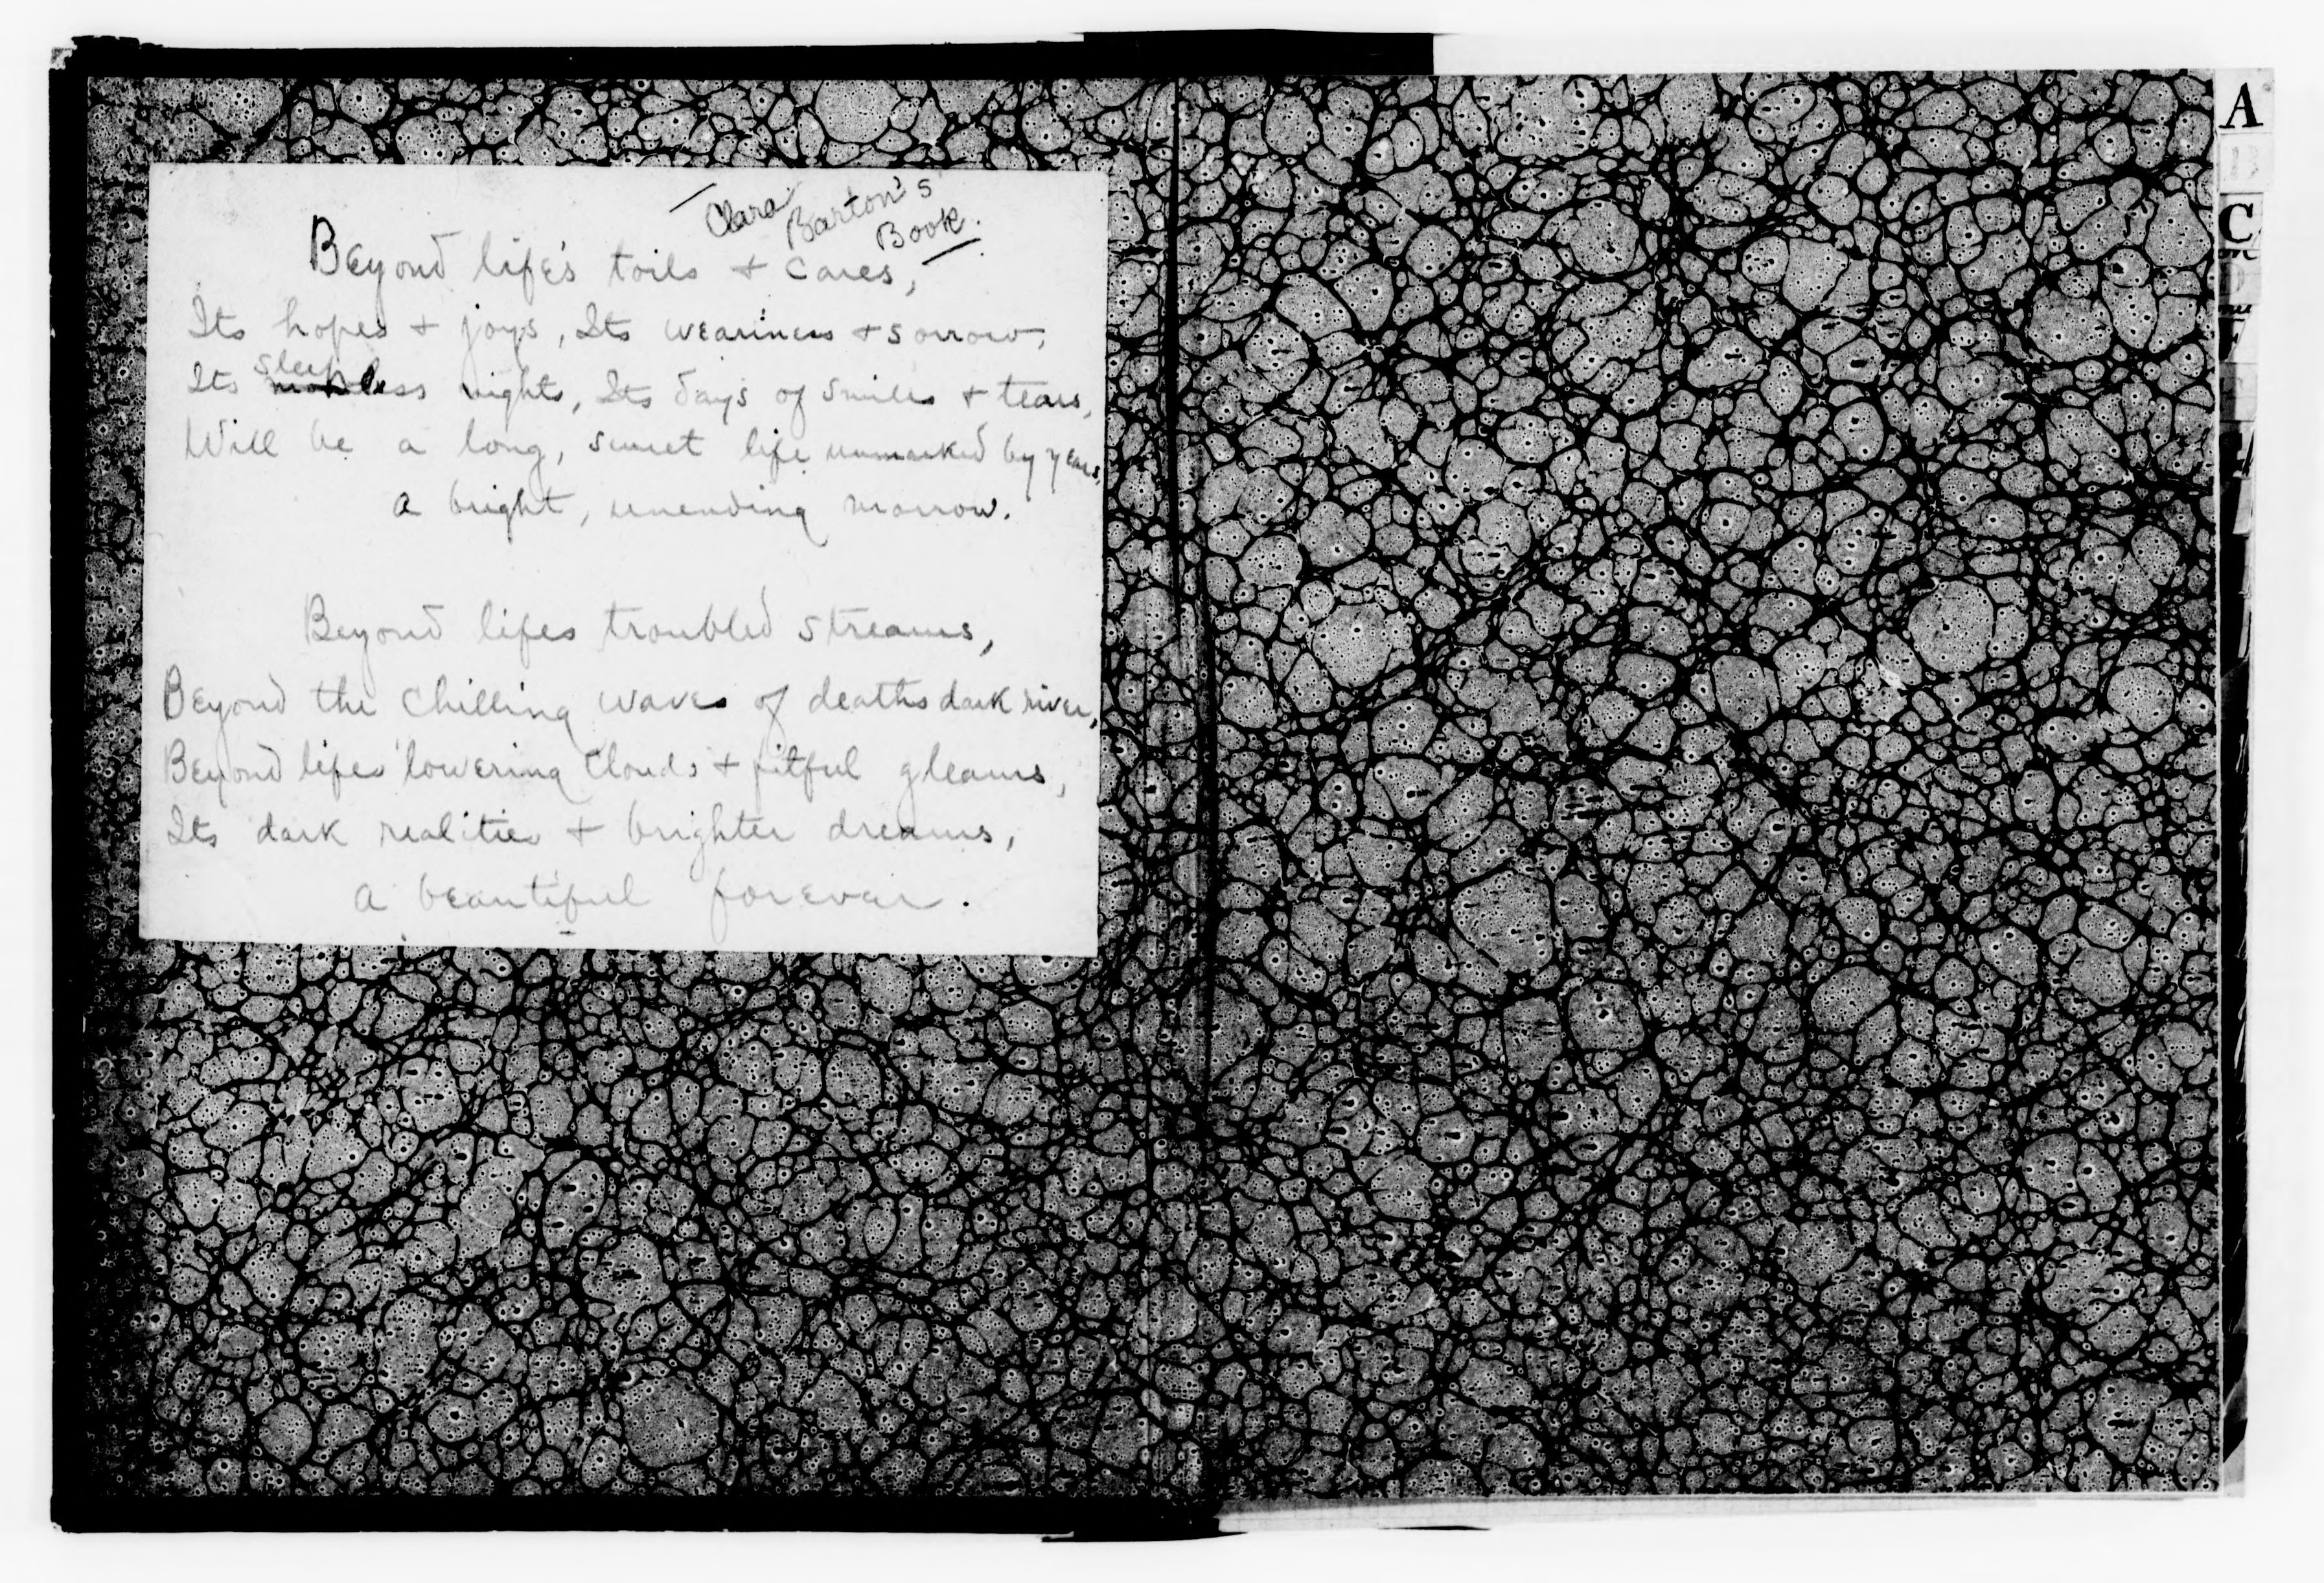 Clara Barton's
Book.
Beyond life's toils + cares,
Its hopes + joys, Its weariness + sorrow,
Its sleepless nights, Its days of smiles + tears,
Will be a long, sweet life unmarked by years,
A bright, unending morrow.
Beyond lifes troubled streams,
Beyond the chilling waves of deaths dark river,
Beyond lifes lowering clouds + fitful gleams,
Its dark realities + brighter dreams,
A beautiful forever.
A
B
C
D